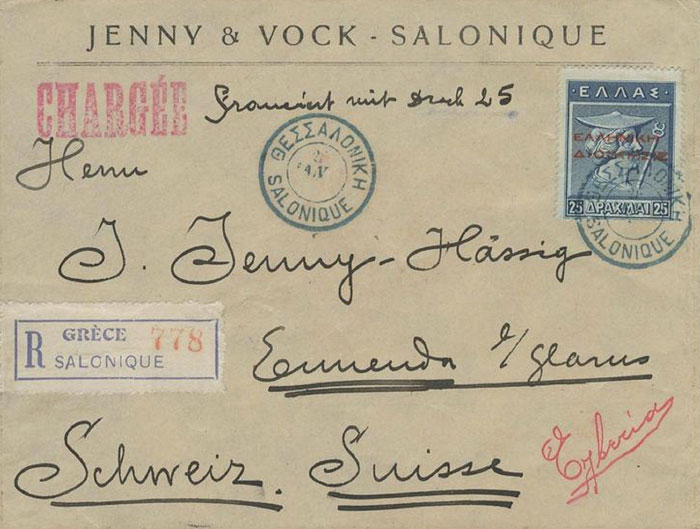 JENNY & VOCK - SALONIQUE
CHARGÉE
Franciert mit Drach 25
ΕΛΛΑΣ
ΕΛΛΗΝΙΚΗ
ΔΙΟΙΚΗΣΙΣ
25 ΔΡΑΧΜΑΙ 25
ΘΕΣΣΑΛΟΝΙΚΗ
SALONIQUE
SALONIQUE
Herrn
J. Jenny-Hässig
R GRÈCE 778
SALONIQUE
Ennenda b/Glarus
Schweiz. Suisse